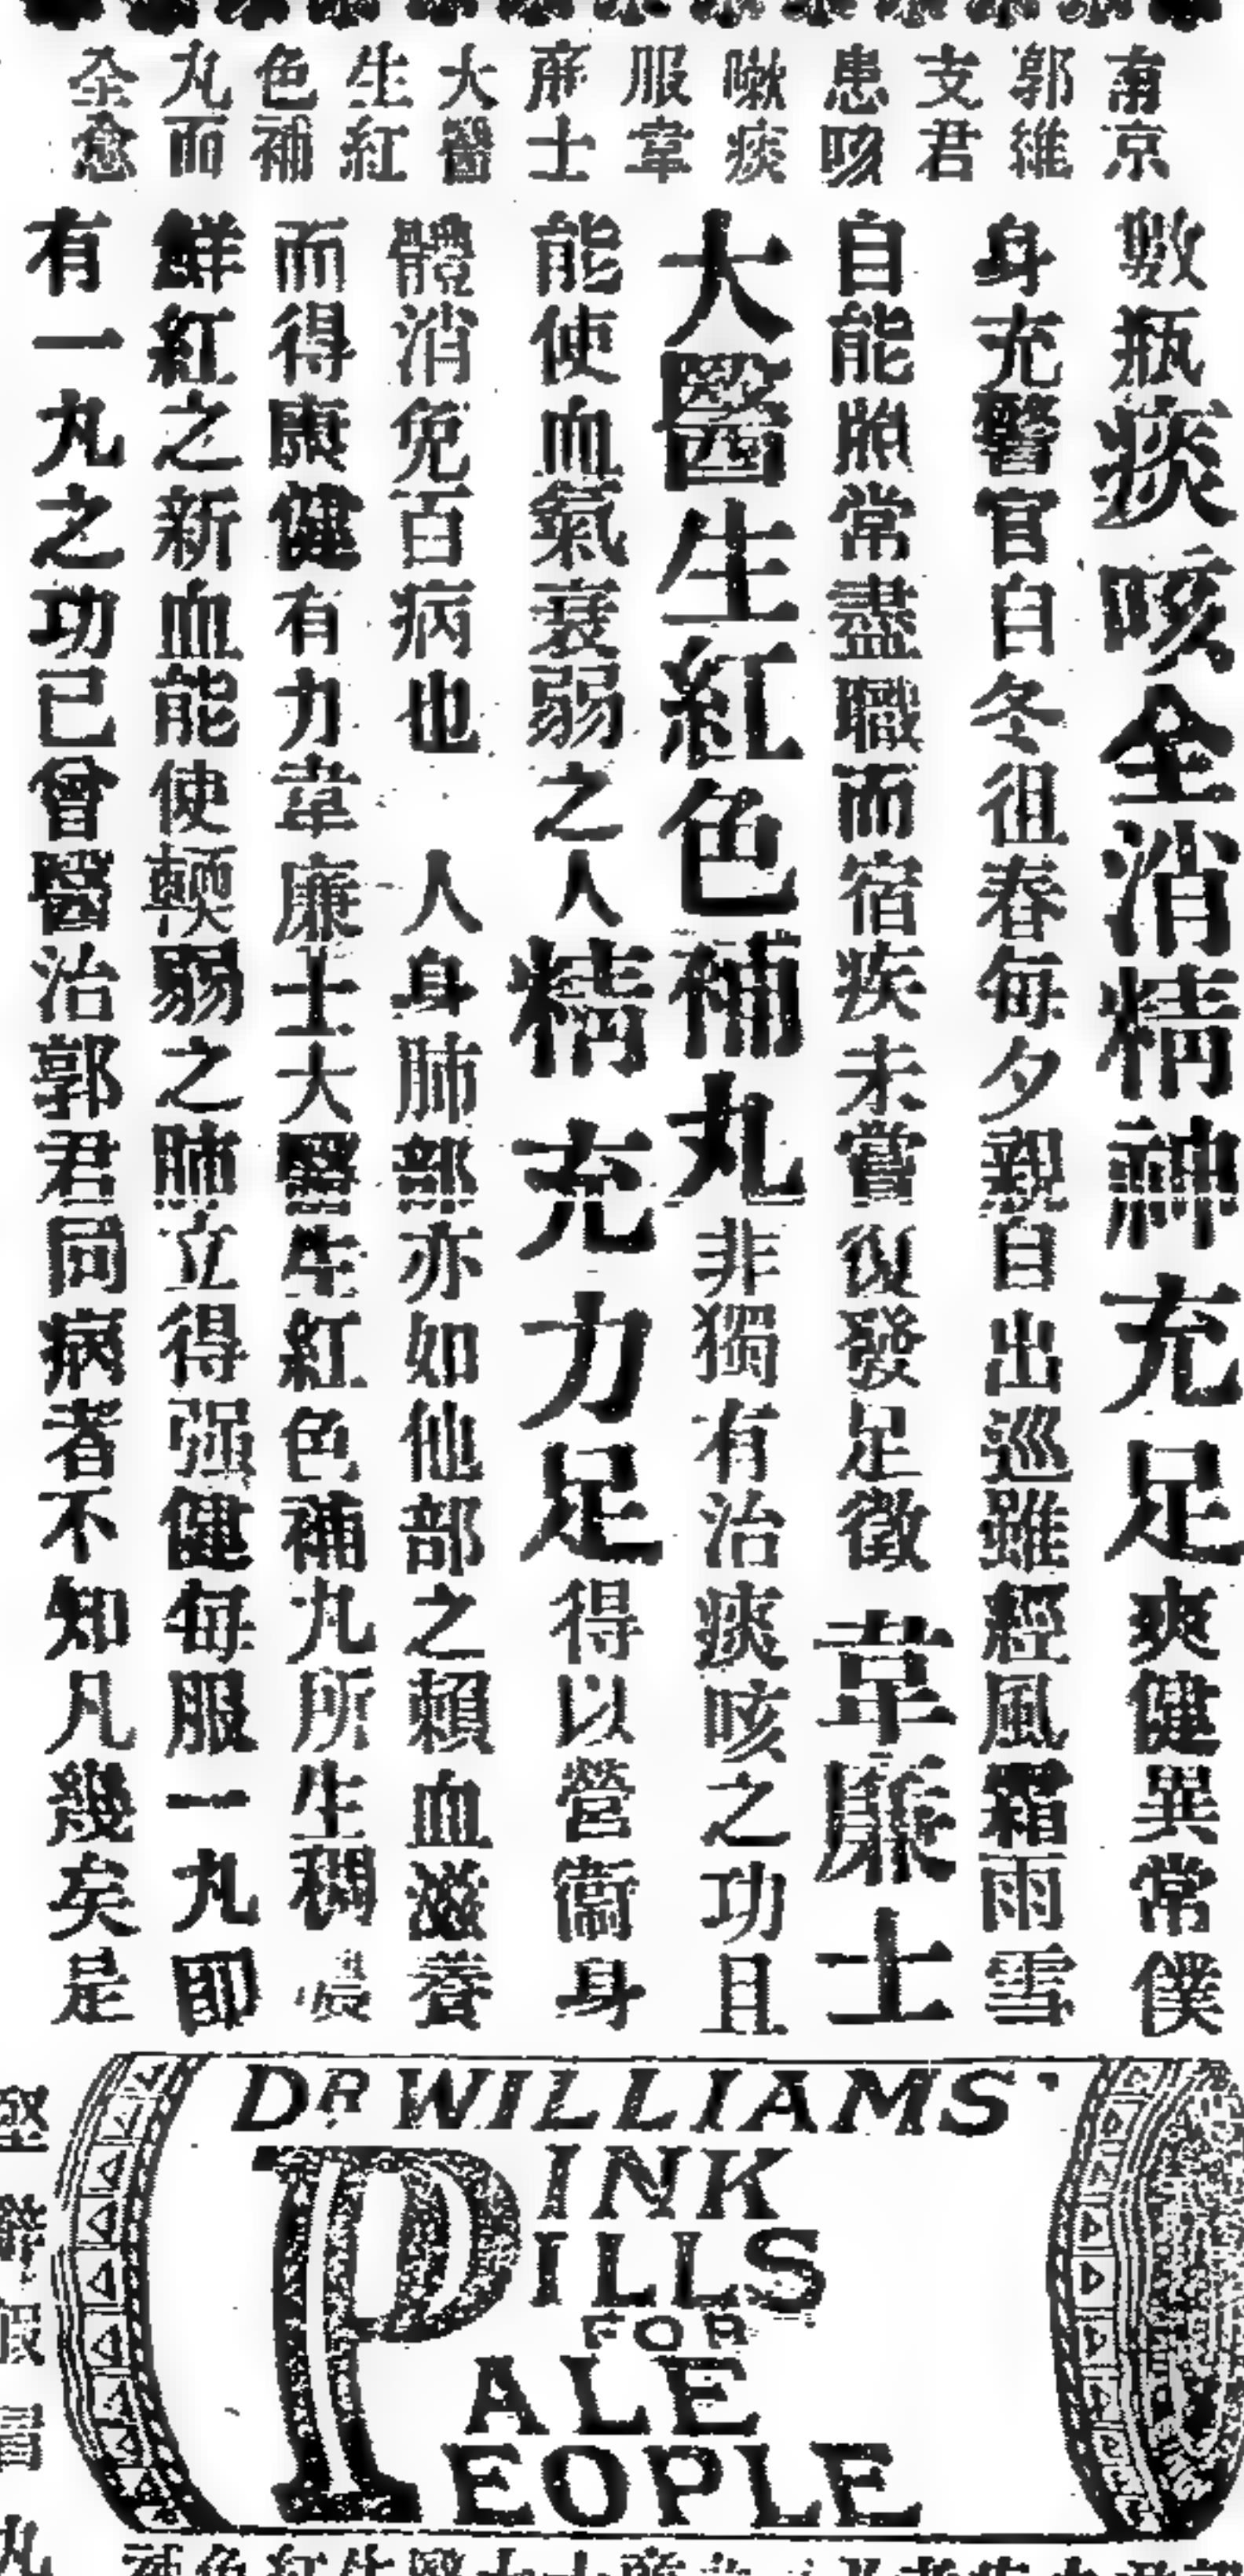 南京
郭維
支君
患咳
嗽痰
服韋
廉士
大醫
生紅
色補
丸而
全愈
數瓶痰咳全消精神充足爽健異常僕
身充警官自冬徂春每夕親自出巡雖經風霜雨雪
自能照常盡職而宿疾未嘗復發足徵韋廉士
大醫生紅色補丸非獨有治痰咳之功且
能使血氣衰弱之人精充力足得以營衞身
體消免百病也 人身肺部亦如他部之賴血滋養
而得康健有力韋廉士大醫生紅色補丸所生稠濃
鮮紅之新血能使輭弱之肺立得强健每服一丸即
有一丸之功已曾醫治郭君同病者不知凡幾矣是
DR WILLIAMS'
PINK
PILLS
FOR
PALE
PEOPLE
假
丸
補色紅生醫大士廉